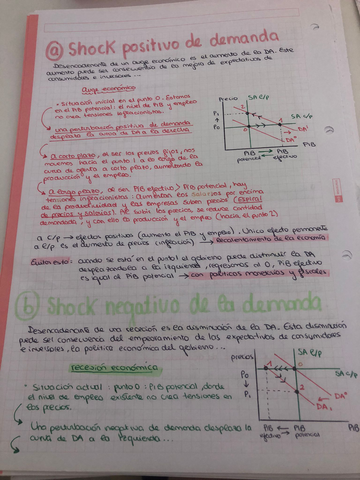 a Shock positivo de demanda
Desencadenante de un auge económico es el aumento de la DA. Este
aumento puede ser consecuencia de la mejora de expectativas de
consumidores e inversores...
Auge económico
· Situación inicial en el punto 0. Estamos
en el PIB potencial: el nivel de PIB y empleo
no crea tensiones inflacionistas.
Una perturbación positiva de demanda
desplaza la curva de DA a la derecha
A corto plazo, al ser los precios fijos, nos
movemos hacia el punto 1 a lo largo de la
curva de oferta a corto plazo, aumentando la
producción y el empleo.
A largo plazo, al ser PIB efectivo > PIB potencial, hay
tensiones inflacionistas: aumentan los salarios por encima
de la productividad y las empresas suben precios (espiral
de precios y salarios). Al subir los precios, se mueve cantidad
demandada, y con ello la producción y el empleo (hacia el punto 2)
a c/p → efectos positivos (aumenta el PIB y empleo). Único efecto permanente
a l/p es el aumento de precios (inflación) → recalentamiento de la economía
Evitar esto: cuando se está en el punto 1 el gobierno puede disminuir la DA
desplazándola a la izquierda, regresamos al 0, PIB efectivo
es igual al PIB potencial → con políticas monetarias y fiscales.
Precio
SA l/p
P₁
P₀
SA c/p
DA'
DA
PIB → PIB
potencial efectivo
b Shock negativo de la demanda
Desencadenante de una recesión es la disminución de la DA. Esta disminución
puede ser consecuencia del empeoramiento de las expectativas de consumidores
e inversores, la política económica del gobierno...
recesión económica
· Situación actual: punto 0: PIB potencial, donde
el nivel de empleo existente no crea tensiones en
los precios.
Una perturbación negativa de demanda desplaza la
curva de DA a la izquierda...
precios
SA l/p
P₀
P₁
SA c/p
DA⁰
DA₁
PIB ← PIB
efectivo potencial